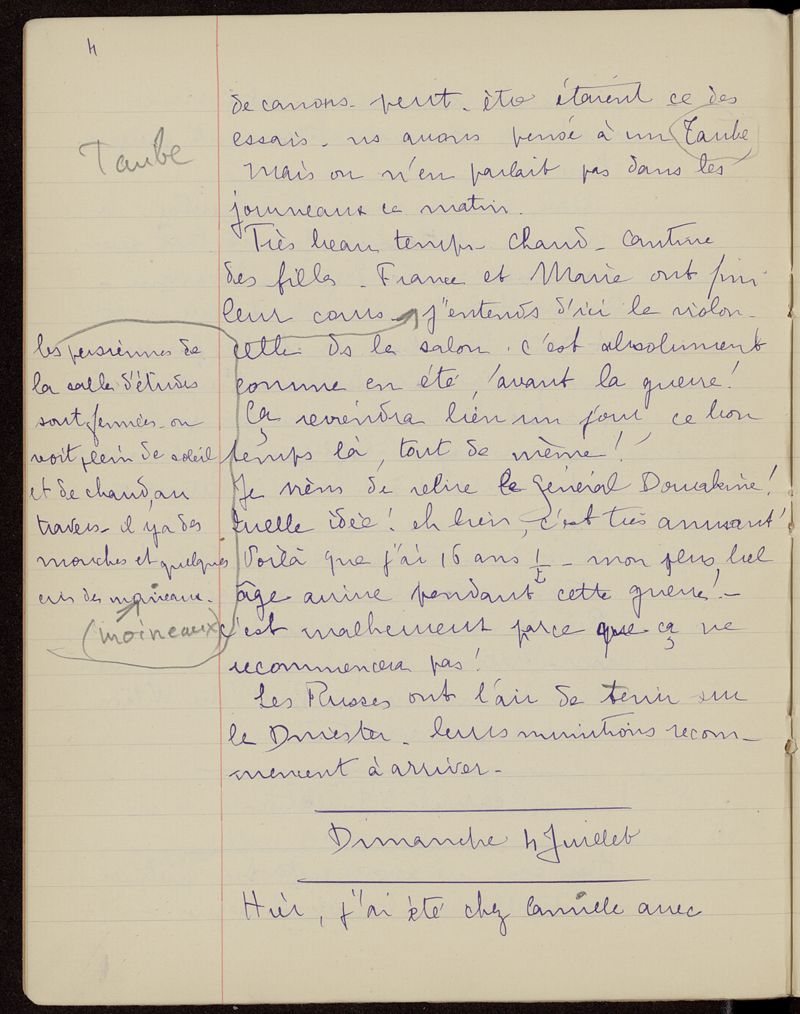 4
Taube
de canons. peut-être étaient ce des
essais. ns avons pensé à un Taube
Mais on n'en parlait pas dans les
journeaux ce matin.
Très beau temps. chaud. Cantine
des filles. France et Marie ont fini
leur cours. j'entends d'ici le violon-
celle ds le salon. c'est absolument
comme en été, avant la guerre!
Ça reviendra bien un jour ce bon
temps là, tout de même!
Je viens de relire le général Dourakine!
Quelle idée! eh bien, c'est très amusant!
Voilà que j'ai 16 ans 1/2 - mon plus bel
âge arrive pendant cette guerre! -
c'est malheureux parce que ça ne
recommencera pas!
Les Russes ont l'air de tenir sur
le Dniester. leurs munitions recom-
mencent à arriver.
les persiennes de
la salle d'études
sont fermées. on
voit plein de soleil
et de chaud, au
travers. il y a des
mouches et quelques
cris des moineaux.
(moineaux)
Dimanche 4 Juillet
Hier, j'ai été chez Camille avec